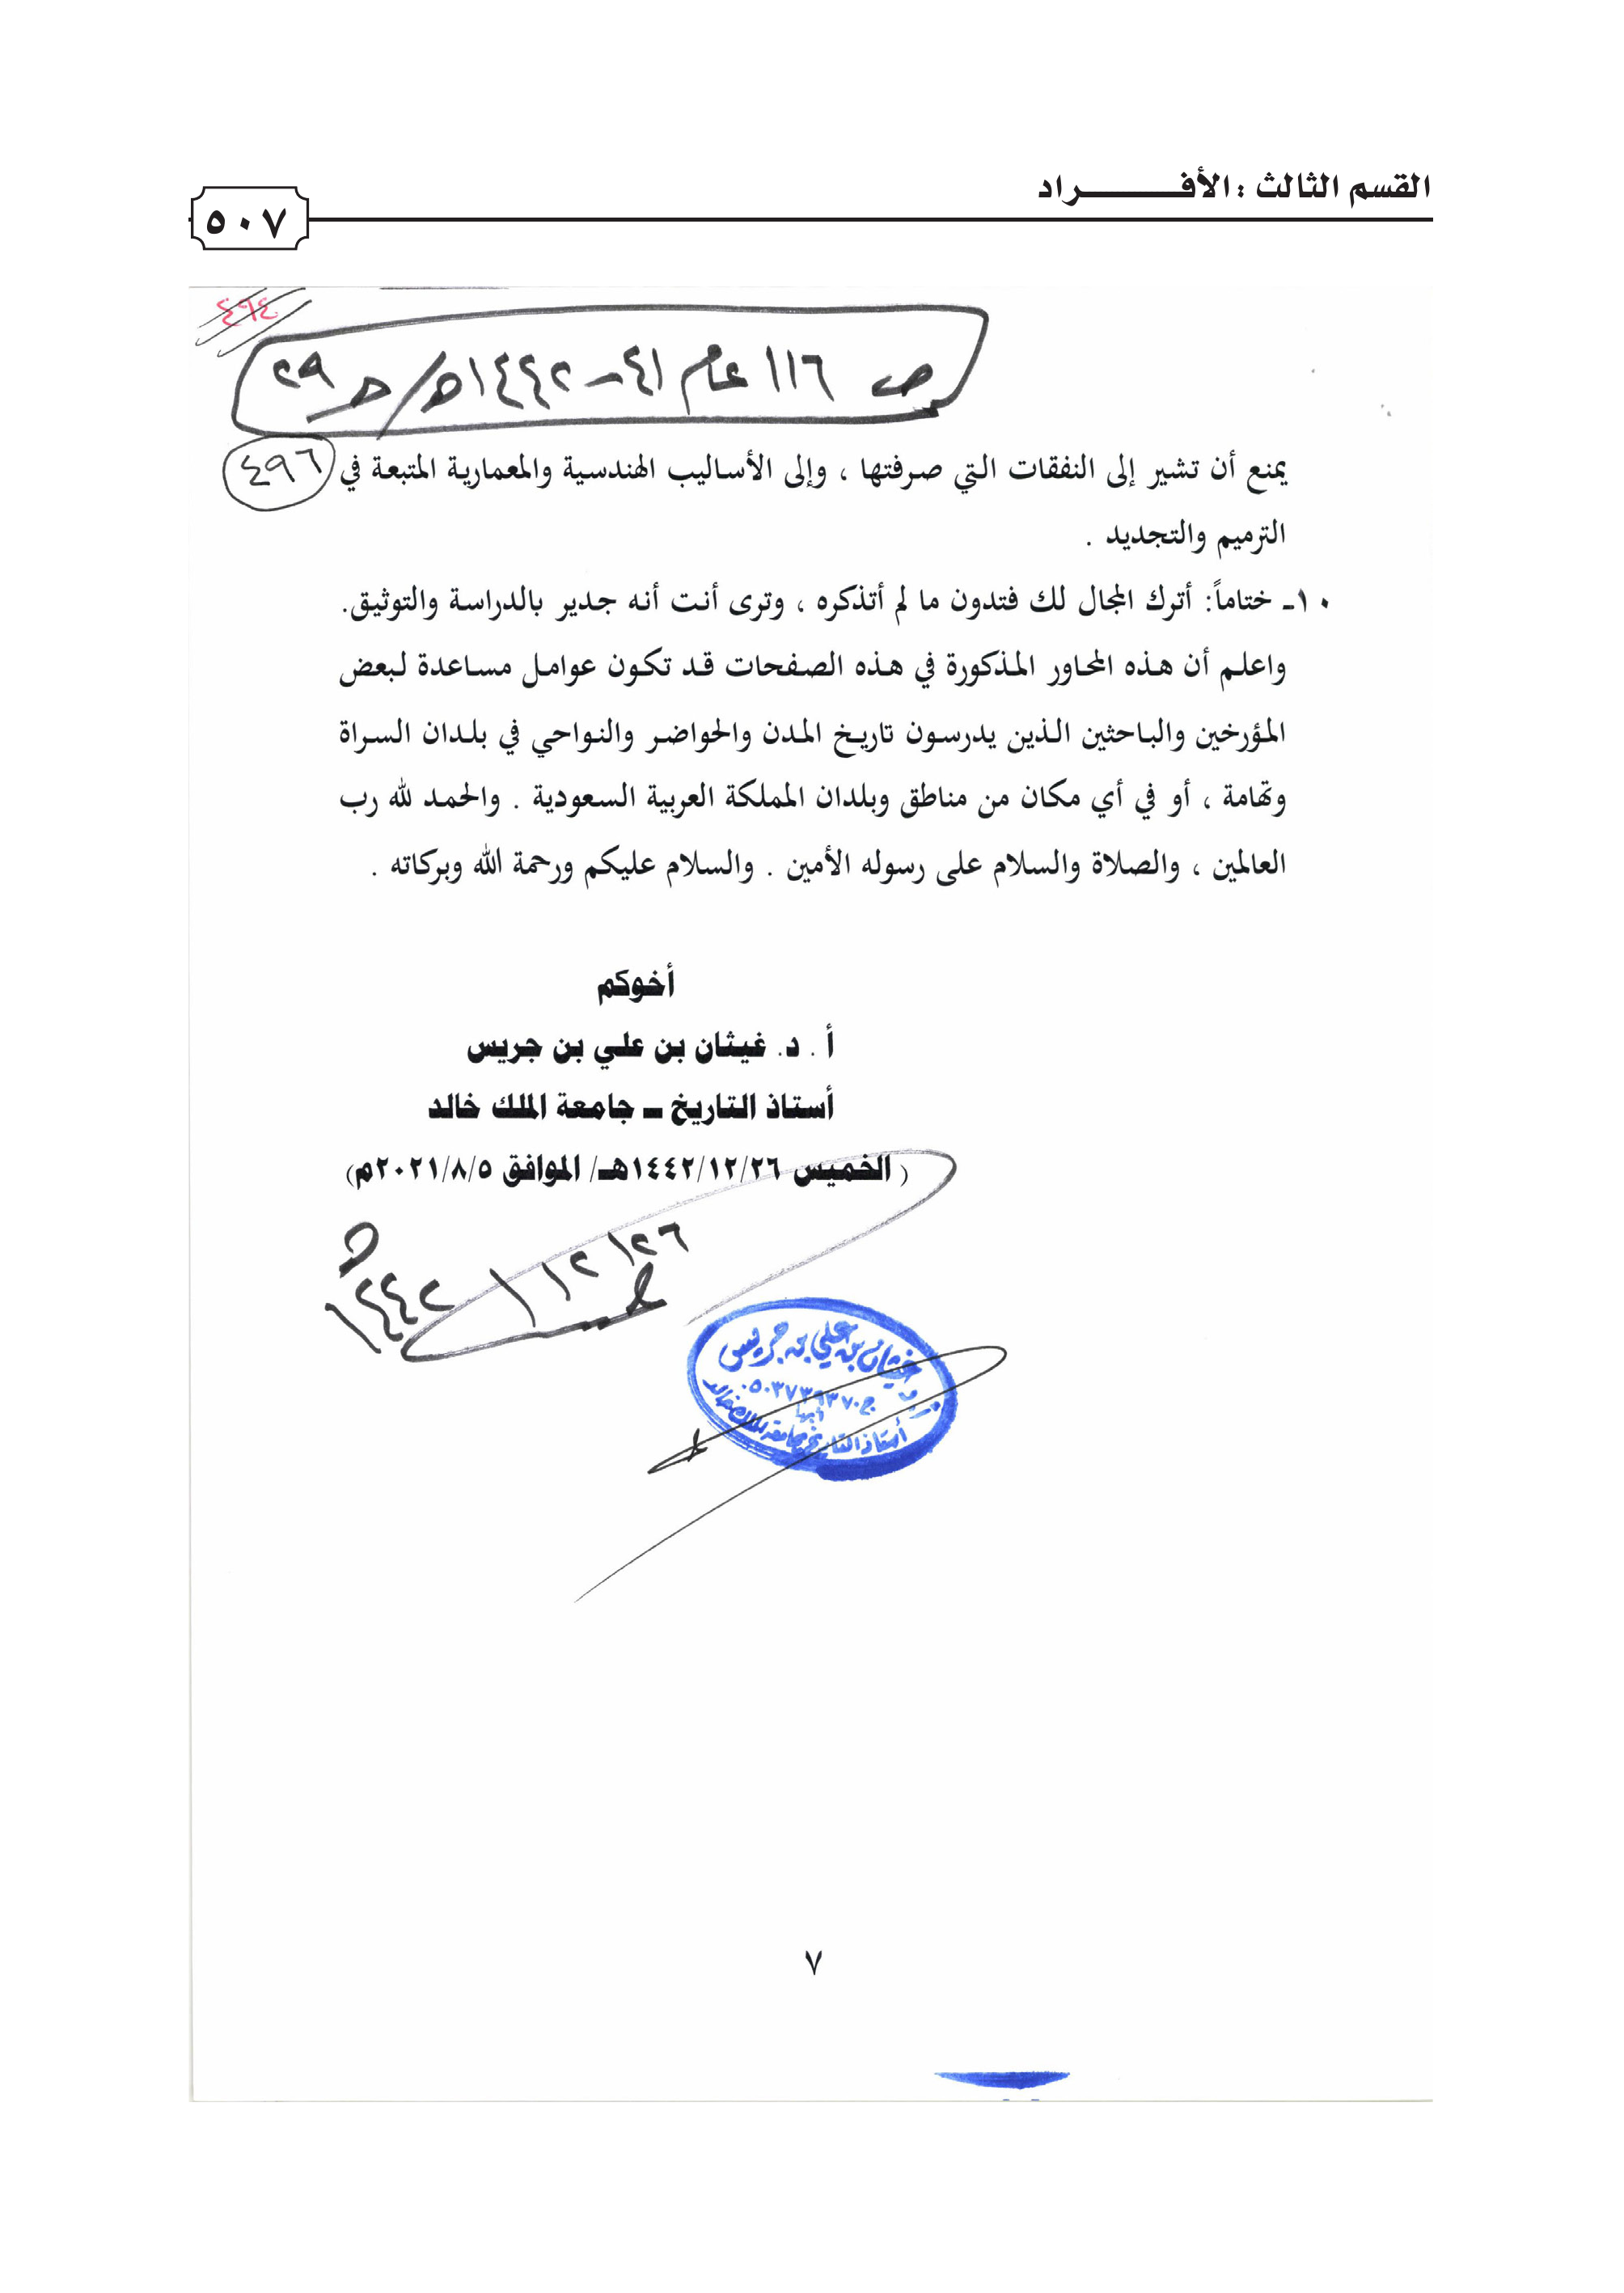 القسم الثالث : الأفـــــــراد
٥٠٧
٤٩٤
ص ١١٦ عام ٤١ - ١٤٤٢هـ / حـ ٢٩
٤٩٦
يمنع أن تشير إلى النفقات التي صرفتها ، وإلى الأساليب الهندسية والمعمارية المتبعة في
الترميم والتجديد .
١٠ـ ختاماً: أترك المجال لك فتدون ما لم أتذكره ، وترى أنت أنه جدير بالدراسة والتوثيق.
واعلم أن هذه المحاور المذكورة في هذه الصفحات قد تكون عوامل مساعدة لبعض
المؤرخين والباحثين الذين يدرسون تاريخ المدن والحواضر والنواحي في بلدان السراة
وتهامة ، أو في أي مكان من مناطق وبلدان المملكة العربية السعودية . والحمد لله رب
العالمين ، والصلاة والسلام على رسوله الأمين . والسلام عليكم ورحمة الله وبركاته .
أخوكم
أ . د. غيثان بن علي بن جريس
أستاذ التاريخ ــ جامعة الملك خالد
( الخميس ١٤٤٢/١٢/٢٦هـ/ الموافق ٢٠٢١/٨/٥م)
٢٦ / ١٢ / ١٤٤٢هـ
غيثان بن علي بن جريس
ج ٠٥٠٣٧٣٩٣٧٠
أبها
أستاذ التاريخ بجامعة الملك خالد
٧